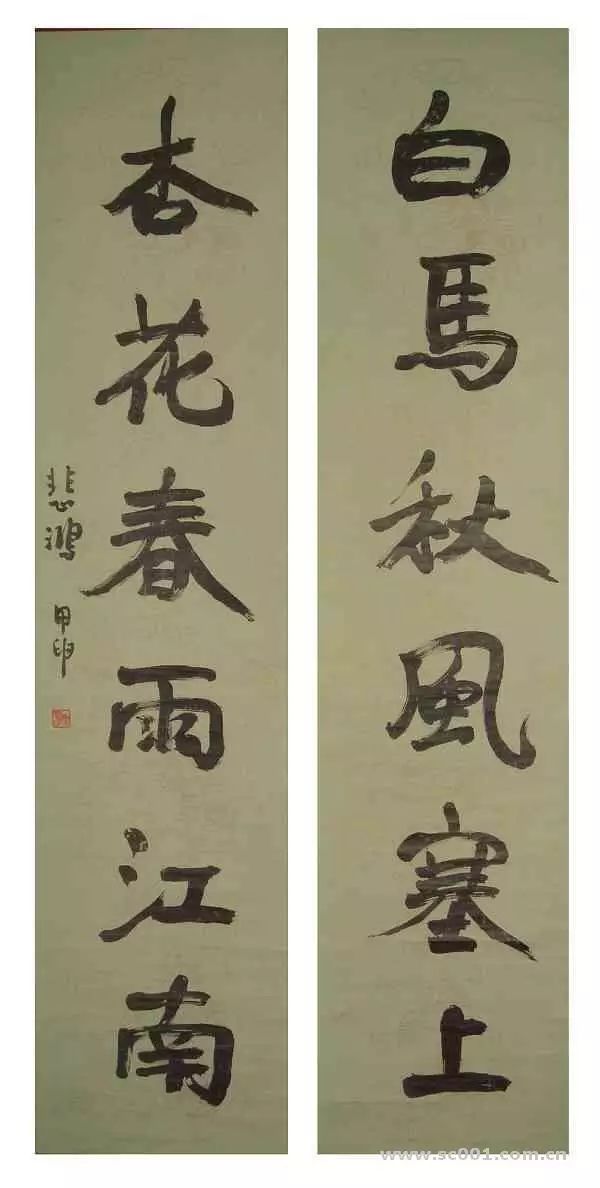 白馬秋風塞上
杏花春雨江南
悲鴻 甲申
www.sc001.com.cn